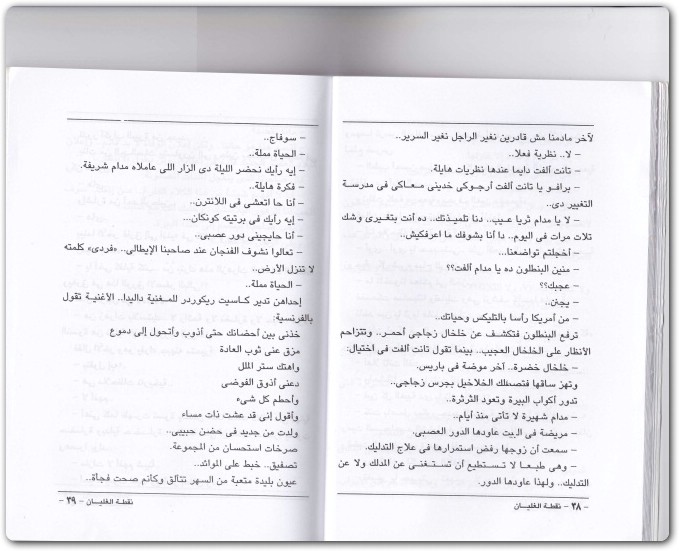 لآخر مادمنا مش قادرين نغير الراجل نغير السرير..
– لا.. نظرية فعلا..
– تانت ألفت دايما عندها نظريات هايلة.
– برافو يا تانت ألفت أرجوكى خدينى معاكى فى مدرسة
التغيير دى..
– لا يا مدام ثريا عيب.. دنا تلميذتك.. ده أنت بتغيرى وشك
تلات مرات فى اليوم.. دا أنا بشوفك ما اعرفكيش..
– أخجلتم تواضعنا...
– منين البنطلون ده يا مدام ألفت؟؟
– عجبك؟؟
– يجنن..
– من أمريكا رأسا بالتليكس وحياتك..
ترفع البنطلون فتكشف عن خلخال زجاجى أحمر.. وتتزاحم
الأنظار على الخلخال العجيب.. بينما تقول تانت ألفت فى اختيال:
– خلخال خضرة.. آخر موضة فى باريس.
وتهز ساقها فتصطك الخلاخيل بجرس زجاجى..
تدور أكواب البيرة وتعود الثرثرة..
– مدام شهيرة لا تأتى منذ أيام..
– مريضة فى البيت عاودها الدور العصبى.
– سمعت أن زوجها رفض استمرارها فى علاج التدليك.
– وهى طبعا لا تستطيع أن تستغنى عن المدلك ولا عن
التدليك.. ولهذا عاودها الدور.
– ٣٨ – نقطة الغليان
– سوفاج..
– الحياة مملة..
– إيه رأيك نحضر الليلة دى الزار اللى عاملاه مدام شريفة.
– فكرة هايلة..
– أنا حا اتعشى فى اللانترن..
– إيه رأيك فى برتيته كونكان..
– أنا حايجينى دور عصبى..
– تعالوا نشوف الفنجان عند صاحبنا الإيطالى.. «فردى» كلمته
لا تنزل الأرض..
– الحياة مملة..
إحداهن تدير كاسيت ريكوردر للمغنية داليدا.. الأغنية تقول
بالفرنسية:
خذنى بين أحضانك حتى أذوب وأتحول إلى دموع
مزق عنى ثوب العادة
واهتك ستر الملل
دعنى أذوق الفوضى
وأحطم كل شىء
وأقول إنى قد عشت ذات مساء
ولدت من جديد فى حضن حبيبى..
صرخات استحسان من المجموعة.
تصفيق.. خبط على الموائد..
عيون بليدة متعبة من السهر تتألق وكأنم صحت فجأة..
نقطة الغليان – ٣٩ –